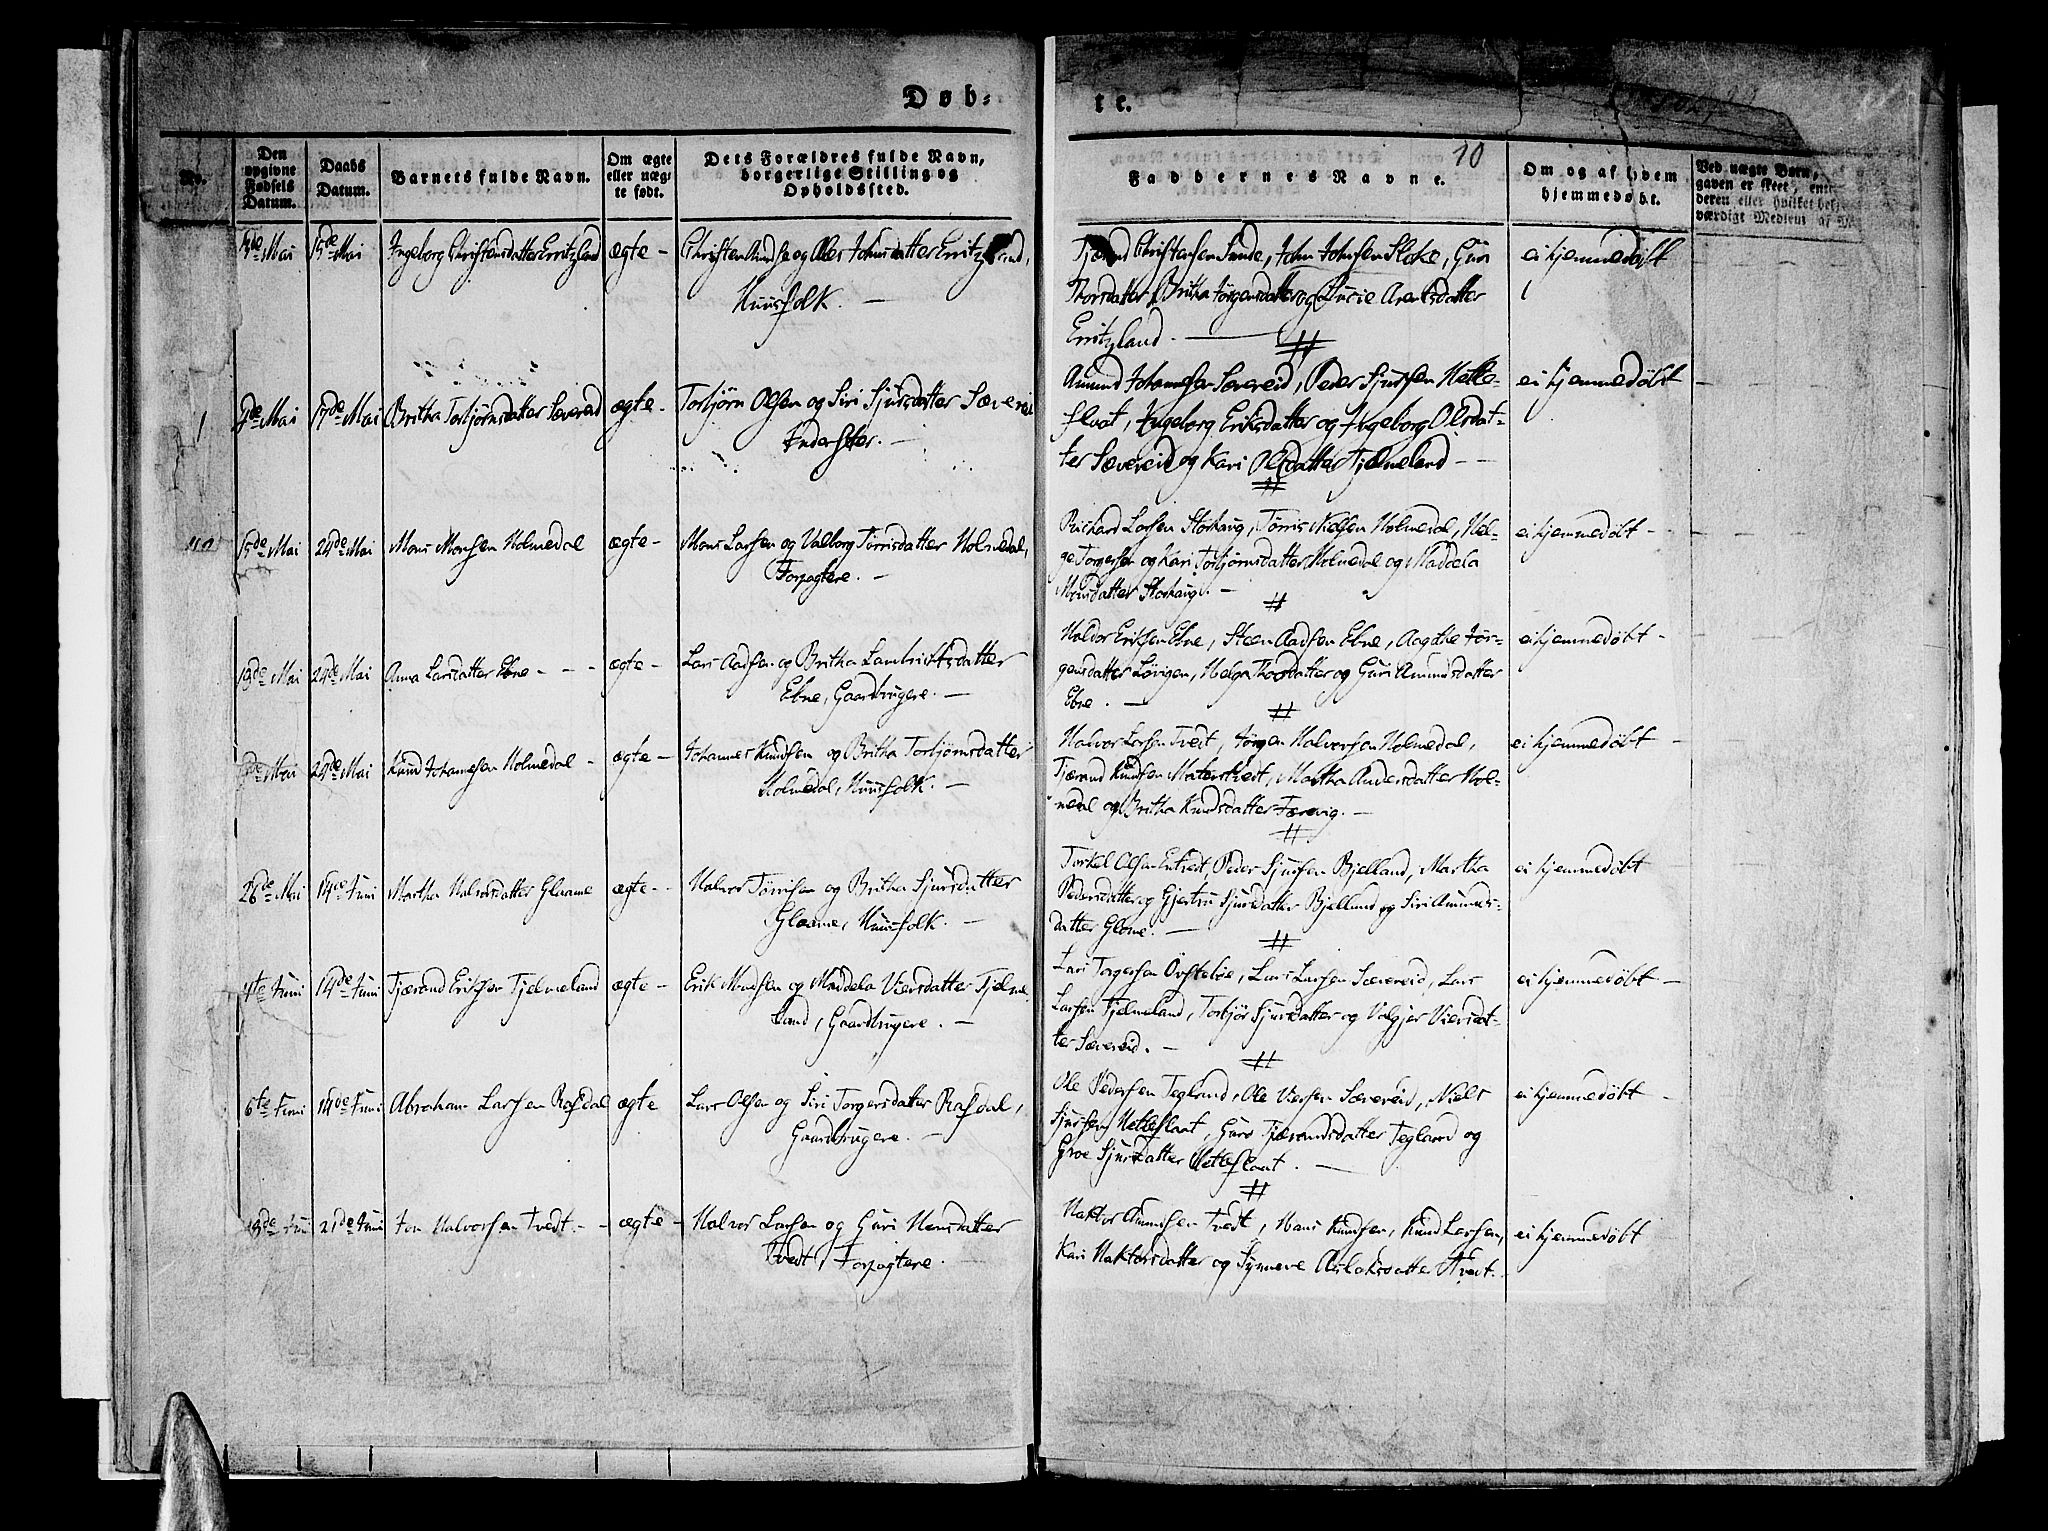 Døb-
te.
10
No.
Den opgivne Fødsels Datum.
Daabs Datum.
Barnets fulde Navn.
Om ægte eller uægte født.
Dets Forældres fulde Navn, borgerlige Stilling og Opholdssted.
Faddernes Navne.
Om og af hvem hjemmedøbt.
Ved uægte Børn,
15de Mai Ingeborg Christensdatter Erritzland ægte-
Huusfolk. -
Christensen Sunde, John Johnsen Sloke, Guri
Thorsdatter, Britha Jørgensdatter og Arentsdatter
Erritzland. -
ei hjemmedøbt
9de Mai 17de Mai Britha Torbjørnsdatter Sævereid ægte-
Torbjørn Olsen og Siri Sjursdatter Sæverei
Inderster. -
Amund Johannesen Sævereid, Peder Sjursen Nette-
flaat, Ingeborg Eriksdatter og Ingeborg Olsdat-
ter Sævereid og Kari Olsdatter Tjelmeland - -
ei hjemmedøbt
15de Mai 24de Mai Mons Monsen Holmedal ægte-
Mons Larsen og Valborg Tørrisdatter Holmedal,
Forpagtere. -
Richard Larsen Storhaug, Tørris Nielsen Holmedal, Hel-
ge Torgersen og Kari Torbjørnsdatter Holmedal og Maddela
Monsdatter Storhaug. -
ei hjemmedøbt -
24de Mai Anna Larsdatter Ebne - - - ægte -
Lars Aadsen og Britha Lambrichtsdatter
Ebne, Gaardbrugere. -
Haldor Eriksen Ebne, Steen Aadsen Ebne, Aagathe Jør-
gensdatter, Helga Thorsdatter og Guri Amundsdatter
Ebne. -
ei hjemmedøbt -
Mai 24de Mai Knud Johannesen Holmedal - ægte -
Johannes Knudsen og Britha Torbjørnsdatter
Holmedal, Huusfolk. -
Halvor Larsen Tvedt, Jørgen Halvorsen Holmedal,
Tjærand Knudsen Matterstvedt, Martha Andersdatter Hol-
medal og Britha Knudsdatter Færevig. -
ei hjemmedøbt -
26de Mai 14de Juni Martha Halvorsdatter Glaame ægte -
Halvor Tørrisen og Britha Sjursdatter
Glaame, Huusfolk. -
Torkel Olsen, Peder Sjursen Bjelland, Martha
Pedersdatter og Gjertru Sjursdatter Bjelland og Siri Amunds-
datter Glome. -
ei hjemmedøbt
4te Juni 14de Juni Tjærand Eriksen Tjelmeland ægte -
Erik og Maddela Viersdatter Tjelme
land, Gaardbrugere. -
Lars Torgersen Øvstebøe, Lars Larsen Sævereid, Lars
Larsen Tjelmeland, Torbjør Sjursdatter og Valgjer Viersdat-
ter Sævereid. -
ei hjemmedøbt -
6te Juni 14de Juni Abraham Larsen Rafdal ægte
Lars Olsen og Siri Torgersdatter Rafdal,
Gaardbrugere. -
Ole Pedersen Tegland, Ole Viersen Sævereid, Niels
Sjursen Netteflaat, Guro Tjærandsdatter Tegland og
Groe Sjursdatter Netteflaat. -
ei hjemmedøbt -
21de Juni Jon Halvorsen Tvedt. - ægte -
Halvor Larsen og Guri Hansdatter
Tvedt, Forpagtere.
Haktor Amundsen Tvedt, Hans Knudsen, Knud Larsen,
Kari Haktorsdatter og Synneve Aslaksdatter Tvedt.
ei hjemmedøbt